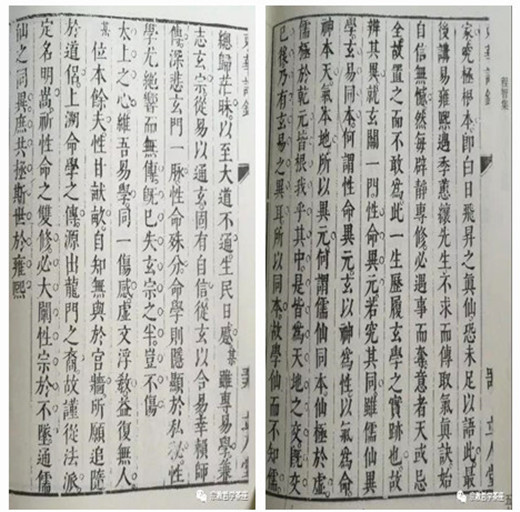 程智集
家究極根本即白日飛昇之真仙恐未足以語此最
後講易雍熙遇季蕙纕先生不求而傳取氣真訣始
自信無憾然每辟靜專修必遇事而棄意者天或忌
全故置之而不敢為此一生歷履玄學之實跡也故
辨其異就玄關一門性命異元若究其同雖儒仙異
學玄易同本何謂性命異元玄以神為性以氣為命
神本天氣本地所以異元何謂儒仙同本仙極於虛
儒極於乾元皆根我乎其中是皆為天地之交既交
已後乃有玄易之異耳所以同本故學仙而不知儒
總歸茫昧以至大道不通生民日慼某雖專易學兼
志玄宗從易以通玄固有自信從玄以合易幸賴師
傳深悲玄門一脈性命殊分命學則隱顯於私秘性
學尤絕響而無傳既已失玄宗之半豈不傷
太上之心維吾易學同一傷感虛文浮教益復無人
某位本餘夫性甘畝自知無與於宮牆所願追隨
於道侶上溯命學之傳源出龍門之裔故謹從法派
定名明嵩祈性命之雙修必大闡性宗於不墜通儒
仙之同異庶共極斯世於雍熙